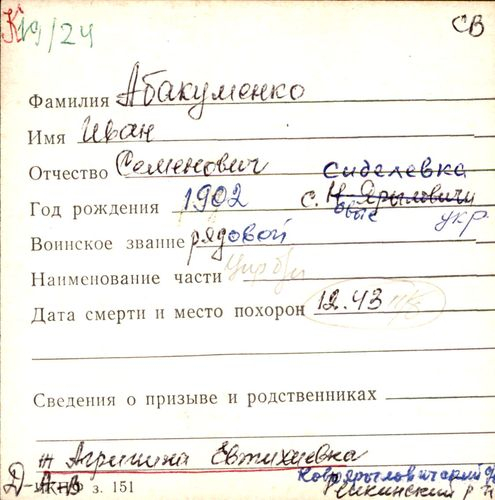 К 19/24 СВ
Фамилия Абакуменко
Имя Иван
Отчество Семенович Сиделевка
Год рождения 1902 с. Н-Ярыловичи
Воинское звание рядовой быте укр.
Наименование части
Дата смерти и место похорон 12.43
Сведения о призыве и родственниках
ж Агрипина Евтихиевка
Д А-В з. 151